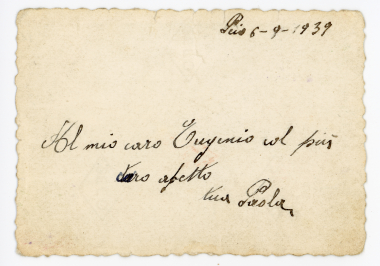 6-9-1939
Al mio caro Eugenio col più
caro afetto
tua Paola